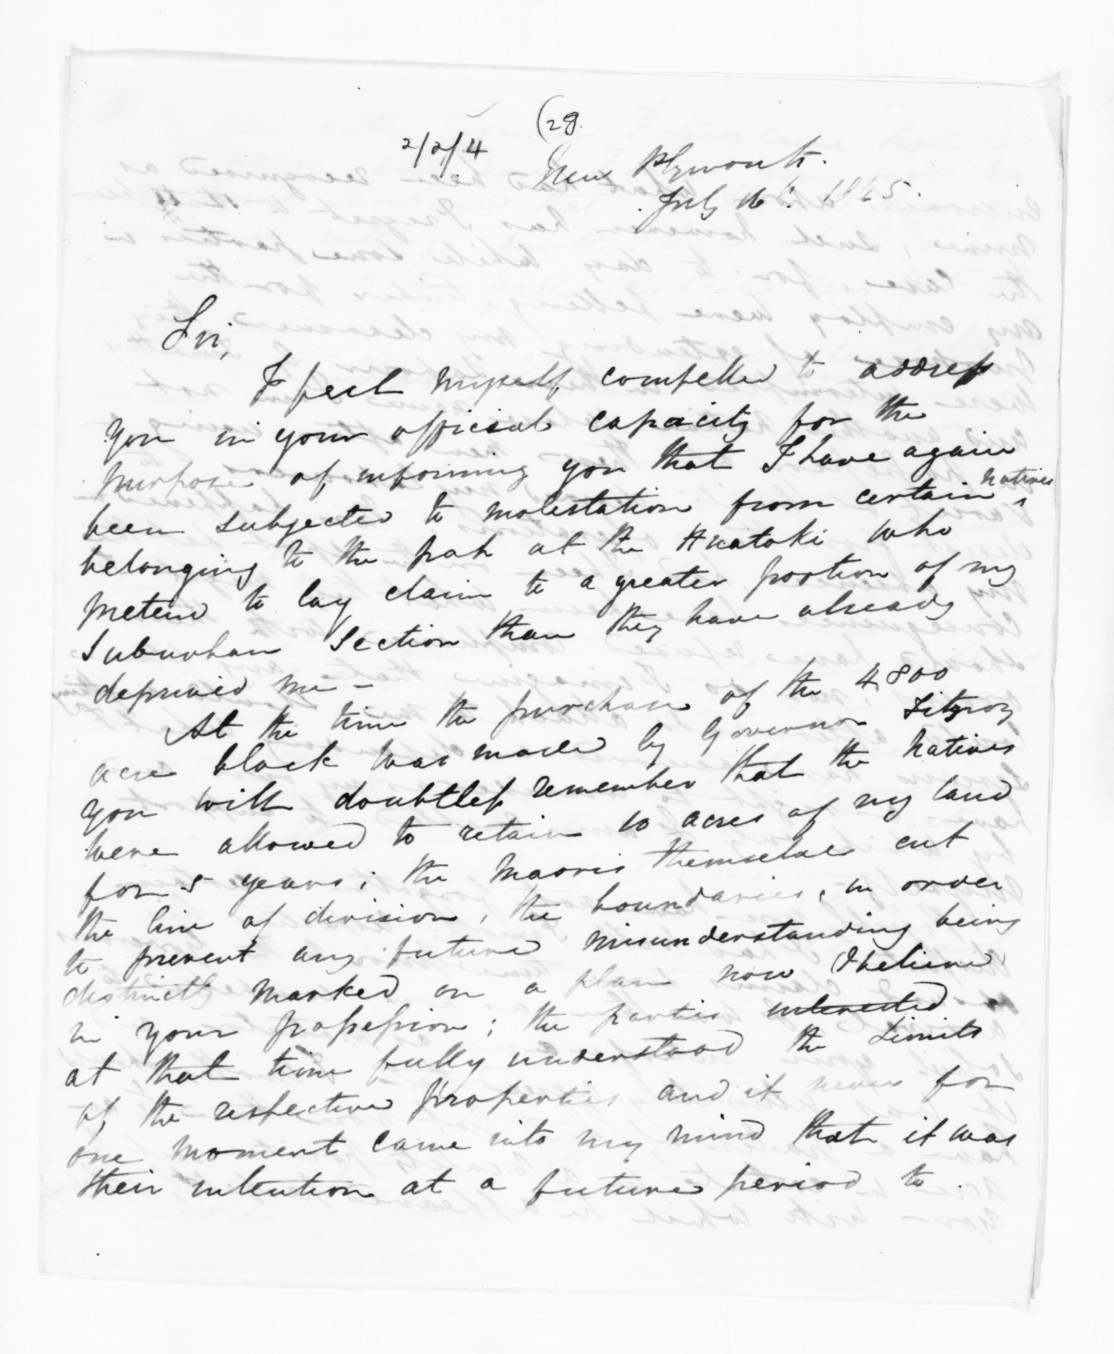 (29.
2/2/4
New Plymouth.
July 16th. 1845.
Sir,
I feel myself compelled to address
you in your official capacity for the
purpose of informing you that I have again
been subjected to molestation from certain natives
belonging to the pah at the Huatoki who
pretend to lay claim to a greater portion of my
Suburban Section than they have already
deprived me —
At the time the purchase of the 4,800
acre block was made by Governor Fitzroy
you will doubtless remember that the Natives
were allowed to retain 10 acres of my land
for 5 years; the Maoris themselves cut
the line of division, the boundaries, in order
to prevent any future misunderstanding being
distinctly marked on a plan now (I believe)
in your possession; the parties interested
at that time fully understood the limits
of the respective properties and it never for
one moment came into my mind that it was
their intention at a future period to